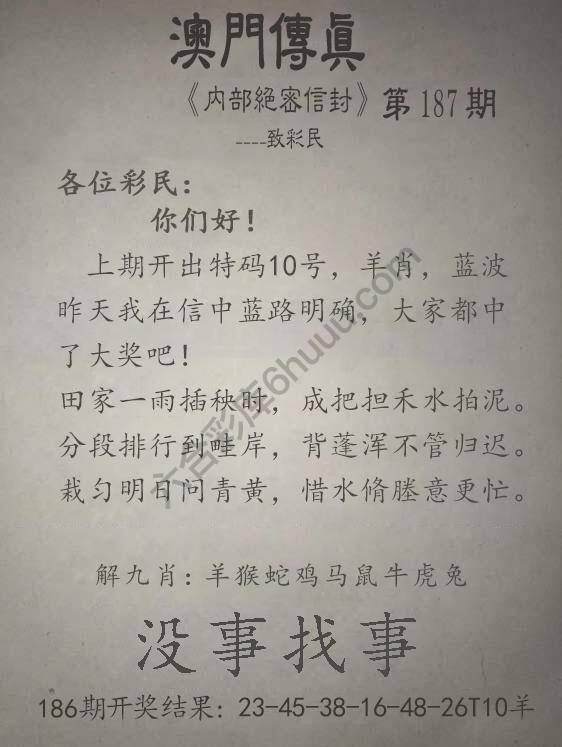 澳門傳真
《内部絕密信封》第187期
----致彩民
各位彩民：
你们好！
上期开出特码10号，羊肖，蓝波
昨天我在信中蓝路明确，大家都中
了大奖吧！
田家一雨插秧时，成把担禾水拍泥。
分段排行到畦岸，背蓬浑不管归迟。
栽匀明日问青黄，惜水脩塍意更忙。
解九肖：羊猴蛇鸡马鼠牛虎兔
没事找事
186期开奖结果：23-45-38-16-48-26T10羊
六合彩库6huuu.com